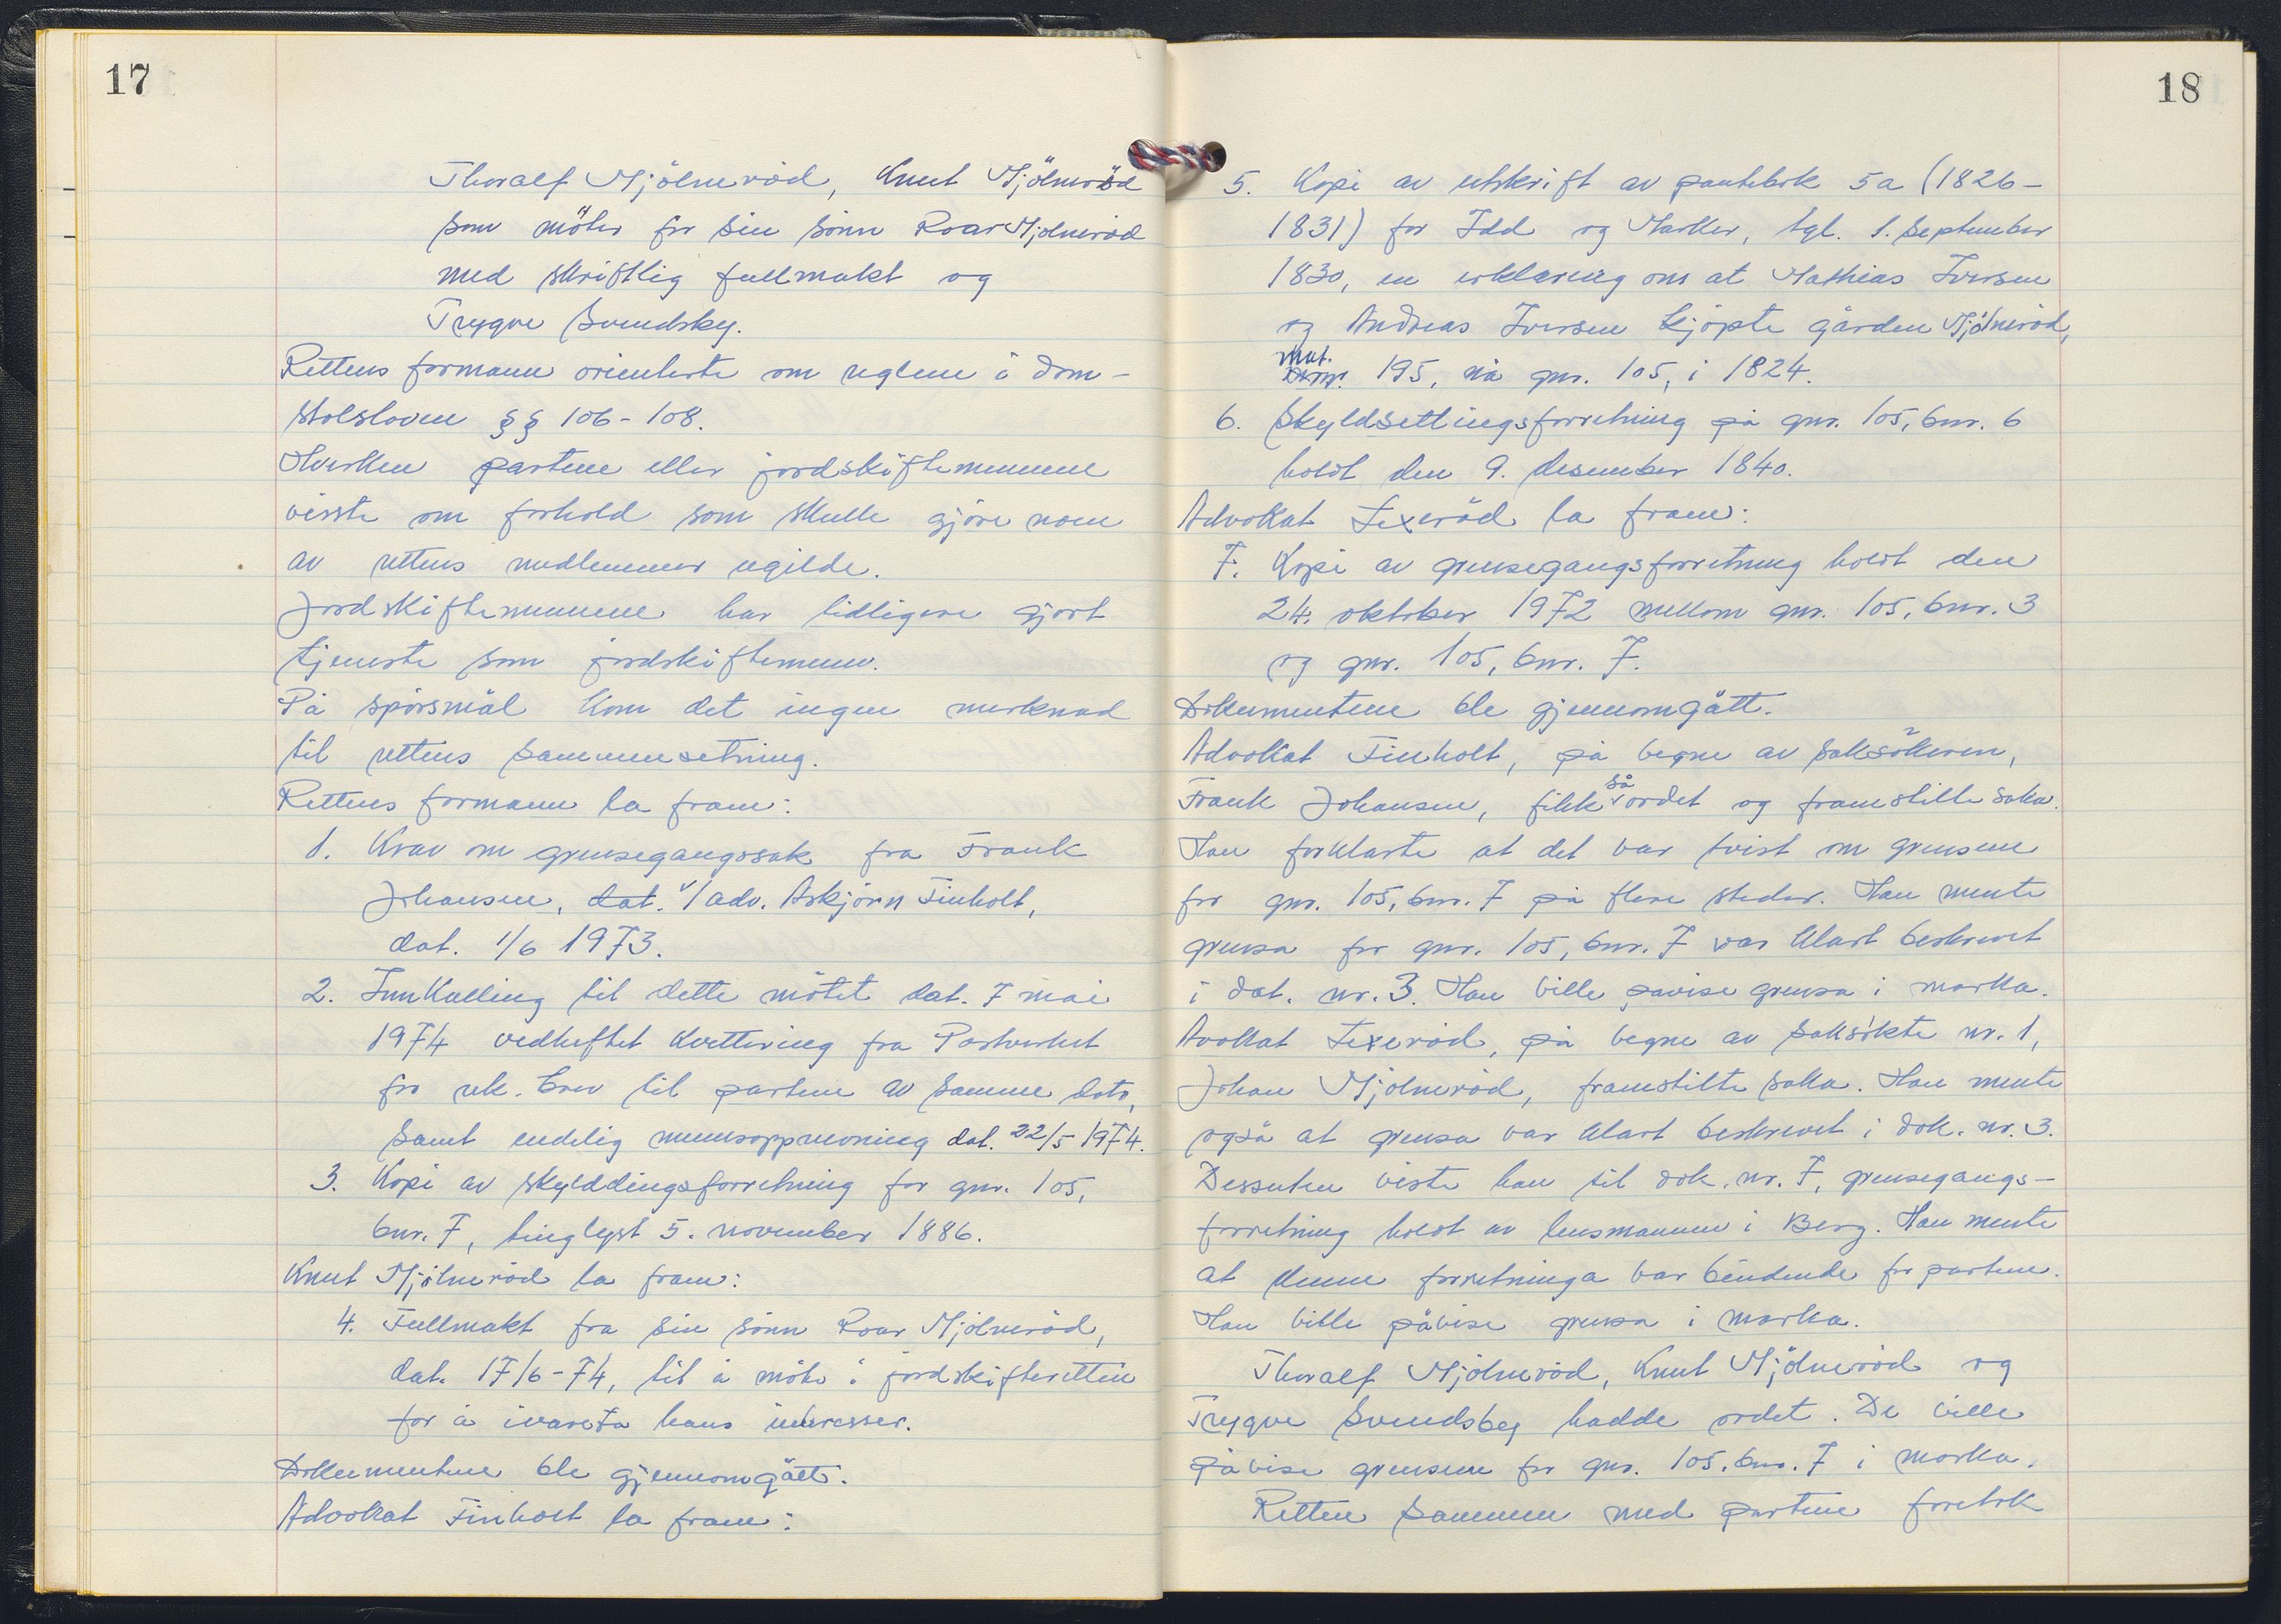 17
Thoralf Mjölneröd, Knut Mjölneröd
som möter for sin sönn Roar Mjölneröd
med skriftlig fullmakt og
Trygve Svendsby.
Rettens formann orienterte om reglene i dom-
stolsloven §§ 106-108.
Hverken partene eller jordskiftemennene
visste om forhold som skulle gjöre noen
av rettens medlemmer ugilde.
Jordskiftemennene har tidligere gjort
tjeneste som jordskiftemenn.
På spörsmål kom det ingen merknad
til rettens sammensetning.
Rettens formann la fram:
1. Krav om grensegangssak fra Frank
Johansen, dat. v/adv. Askjörn Finholt,
dat. 1/6 1973.
2. Innkalling til dette mötet dat. 7 mai
1974 vedheftet kvittering fra Postverket
for rek. brev til partene av samme dato,
samt endelig mannsoppnevning dat. 22/5 1974.
3. Kopi av skylddelingsforretning for gnr. 105,
bnr. 7, tinglyst 5. november 1886.
Knut Mjölneröd la fram:
4. Fullmakt fra sin sönn Roar Mjölneröd,
dat. 17/6-74, til å möte i jordskifteretten
for å ivareta hans interesser.
Dokumentene ble gjennomgått.
Advokat Finholt la fram:
18
5. Kopi av utskrift av pantebok 5a (1826-
1831) for Idd og Marker, tgl. 1. september
1830, en erklæring om at Mathias Iversen
og Andreas Iversen kjöpte gården Mjölneröd,
mat.
195, nå gnr. 105, i 1824.
6. Skyldsettingsforretning på gnr. 105, bnr. 6
holdt den 9. desember 1840.
Advokat Lexeröd la fram:
7. Kopi av grensegangsforretning holdt den
24. oktober 1972 mellom gnr. 105, bnr. 3
og gnr. 105, bnr. 7.
Dokumentene ble gjennomgått.
Advokat Finholt, på vegne av saksökeren,
Frank Johansen, fikk så ordet og framstilte saka.
Han forklarte at det var tvist om grensene
for gnr. 105, bnr. 7 på flere steder. Han mente
grensa for gnr. 105, bnr. 7 var klart beskrevet
i dok. nr. 3. Han ville påvise grensa i marka.
Avokat Lexeröd, på vegne av saksökte nr. 1,
Johan Mjölneröd, framstilte saka. Han mente
også at grensa var klart beskrevet i dok. nr. 3.
Dessuten viste han til dok. nr. 7, grensegangs-
forretning holdt av lensmannen i Berg. Han mente
at denne forretninga var bindende for partene.
Han ville påvise grensa i marka.
Thoralf Mjölneröd, Knut Mjölneröd og
Trygve Svendsby hadde ordet. De ville
påvise grensene for gnr. 105, bnr. 7 i marka.
Retten sammen med partene foretok